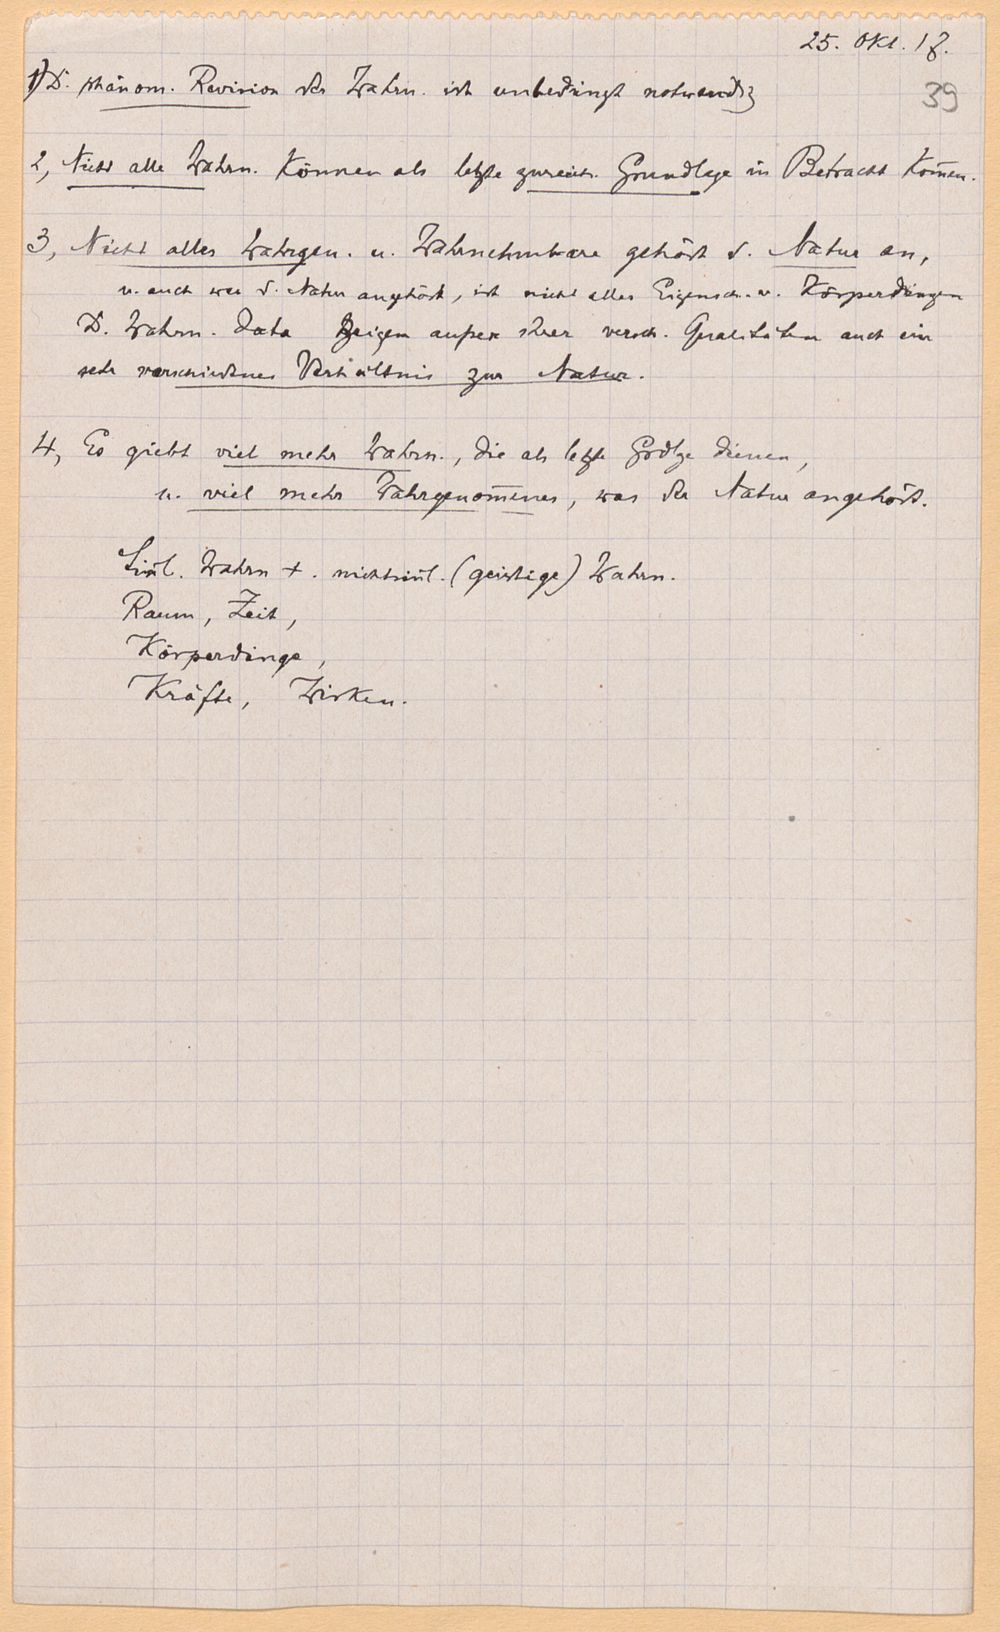 25. Okt. 18.
39
1) D. phänom. Revision der Wahrn. ist unbedingt notwendig
2, Nicht alle Wahrn. können als letzte zureich. Grundlage in Betracht kom̄en.
3, Nicht alles Wahrgen. u. Wahrnehmbare gehört d. Natur an,
u. auch was d. Natur angehört, ist nicht alles Eigensch. v. Körperdingen
D. Wahrn. Data zeigen außer ihrer versch. Qualitäten auch ein
sehr verschiedenes Verhältnis zur Natur.
4, Es giebt viel mehr Wahrn., die als letzte Grdlge dienen,
u. viel mehr Wahrgenom̄enes, was der Natur angehört.
Sinl. Wahrn +. nichtsinl. (geistige) Wahrn.
Raum, Zeit,
Körperdinge,
Kräfte, Wirken.